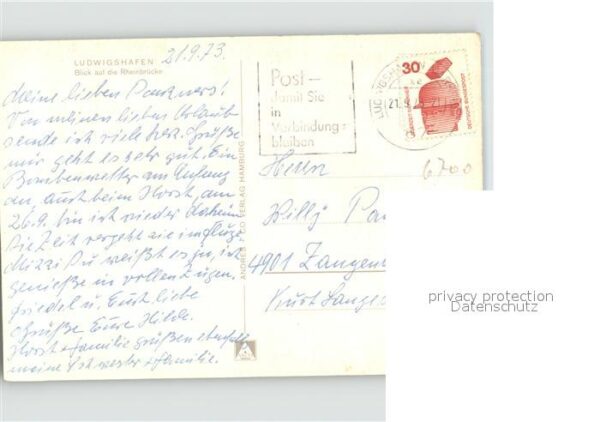 LUDWIGSHAFEN
Blick auf die Rheinbrücke
21.9.73.
Meine lieben Panzners!
Von meinen lieben Urlaub
sende ich viele herz. Grüße
mir geht es sehr gut. Ein
Bombenwetter am Anfang
an, auch beim Horst, am
26.9. bin ich wieder daheim
Die Zeit vergeht wie im Fluge
Mizzi Du weißt es ja, ich
genieße in vollen Zügen.
Friedel u. liebe
Grüße Eure Hilde.
Horst + Familie grüßen ebenfalls
meine Schwester + Familie.
VERLAG HAMBURG
Post –
damit Sie
in
Verbindung
bleiben
LUDWIGSHAFEN
21.9.
30
DEUTSCHE BUNDESPOST
Herrn
6700
Willy Pa
4901 Zangen
Kurt Lange
privacy protection
Datenschutz